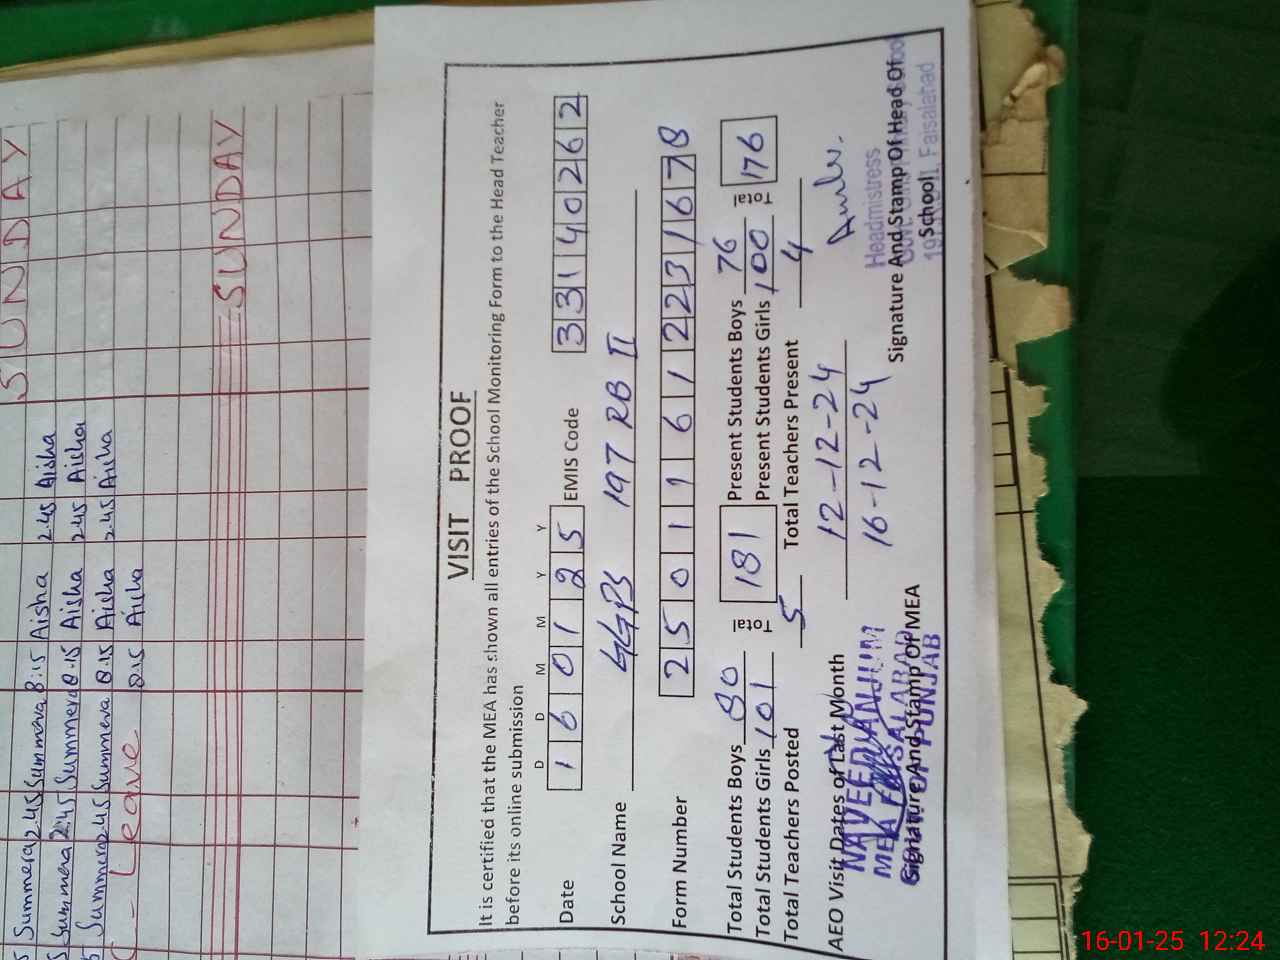 VISIT PROOF
It is certified that the MEA has shown all entries of the School Monitoring Form to the Head Teacher
before its online submission
D D M M Y Y
Date 16 01 25 EMIS Code 33140262
School Name GGPS 197 RB II
Form Number 2501161223167 8
Total Students Boys 80 Total 181 Present Students Boys 76 Total 176
Total Students Girls 101 Present Students Girls 100
Total Teachers Posted 5 Total Teachers Present 4
AEO Visit Dates of Last Month 12-12-24
16-12-24
NAVEED ANJUM
MEA FAISALABAD
GOVT OF PUNJAB
Signature And Stamp Of MEA
Headmistress
Signature And Stamp Of Head Of
School
Faisalabad
SUNDAY
Summera 2.45 Summera 8:15 Aisha 2.45 Aisha
Summera 2:45 Summera 8.15 Aisha 2.45 Aisha
Summera 2.45 Summera 8.15 Aisha 2.45 Aisha
Leave 8.15 Aisha
SUNDAY
16-01-25 12:24